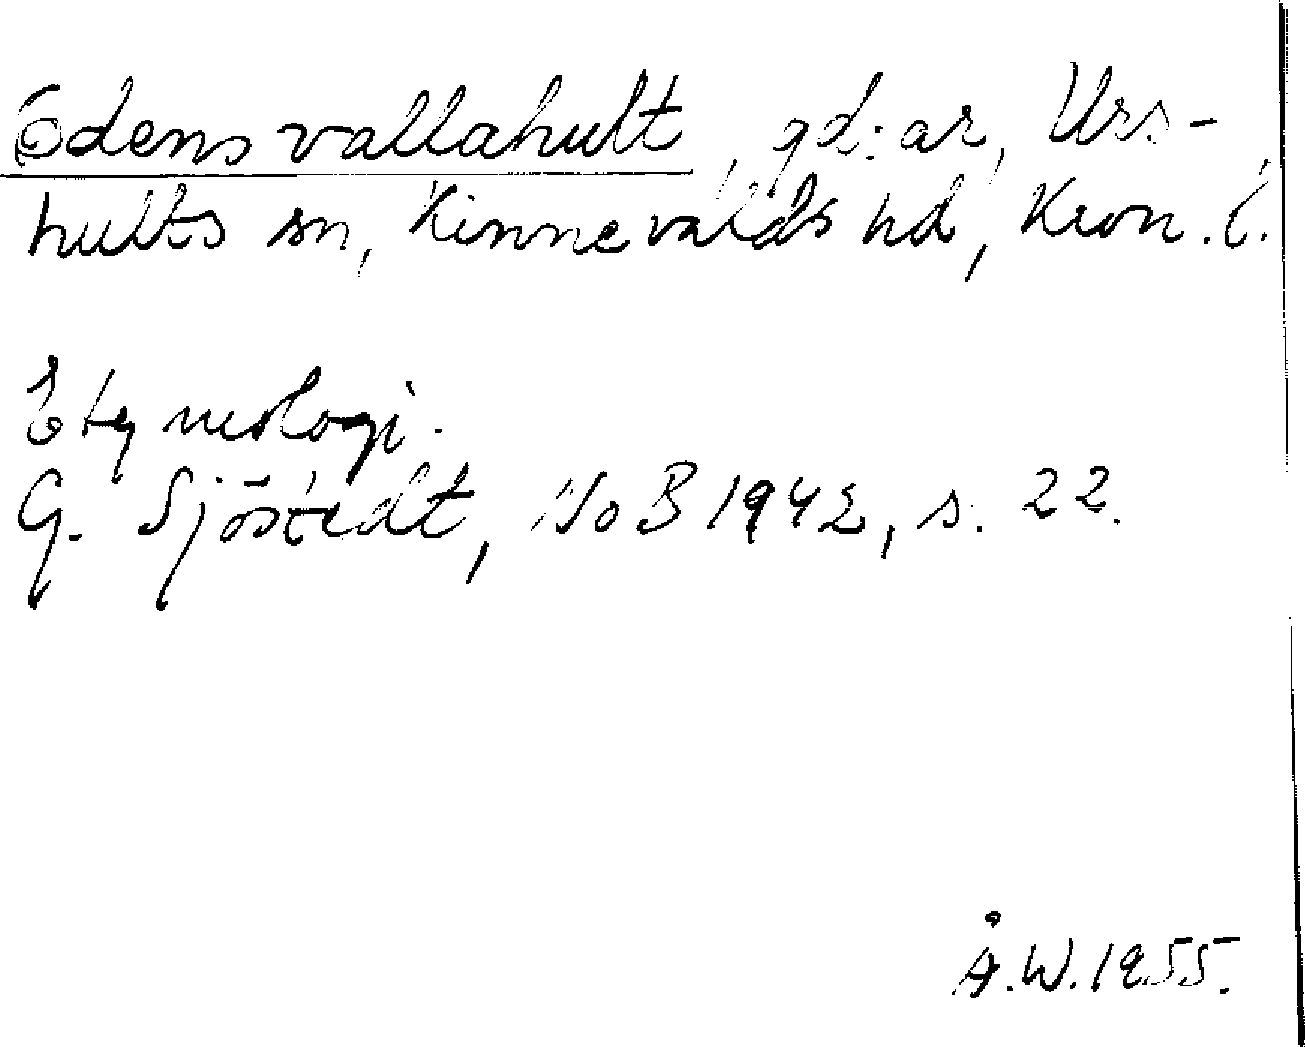 Edensvallahult, gd:ar, Urs-
hults sn, Kinnevalds hd, Kron. l.
Etymologi.
G. Sjöstedt, NoB 1942, s. 22.
Å.W. 1955.